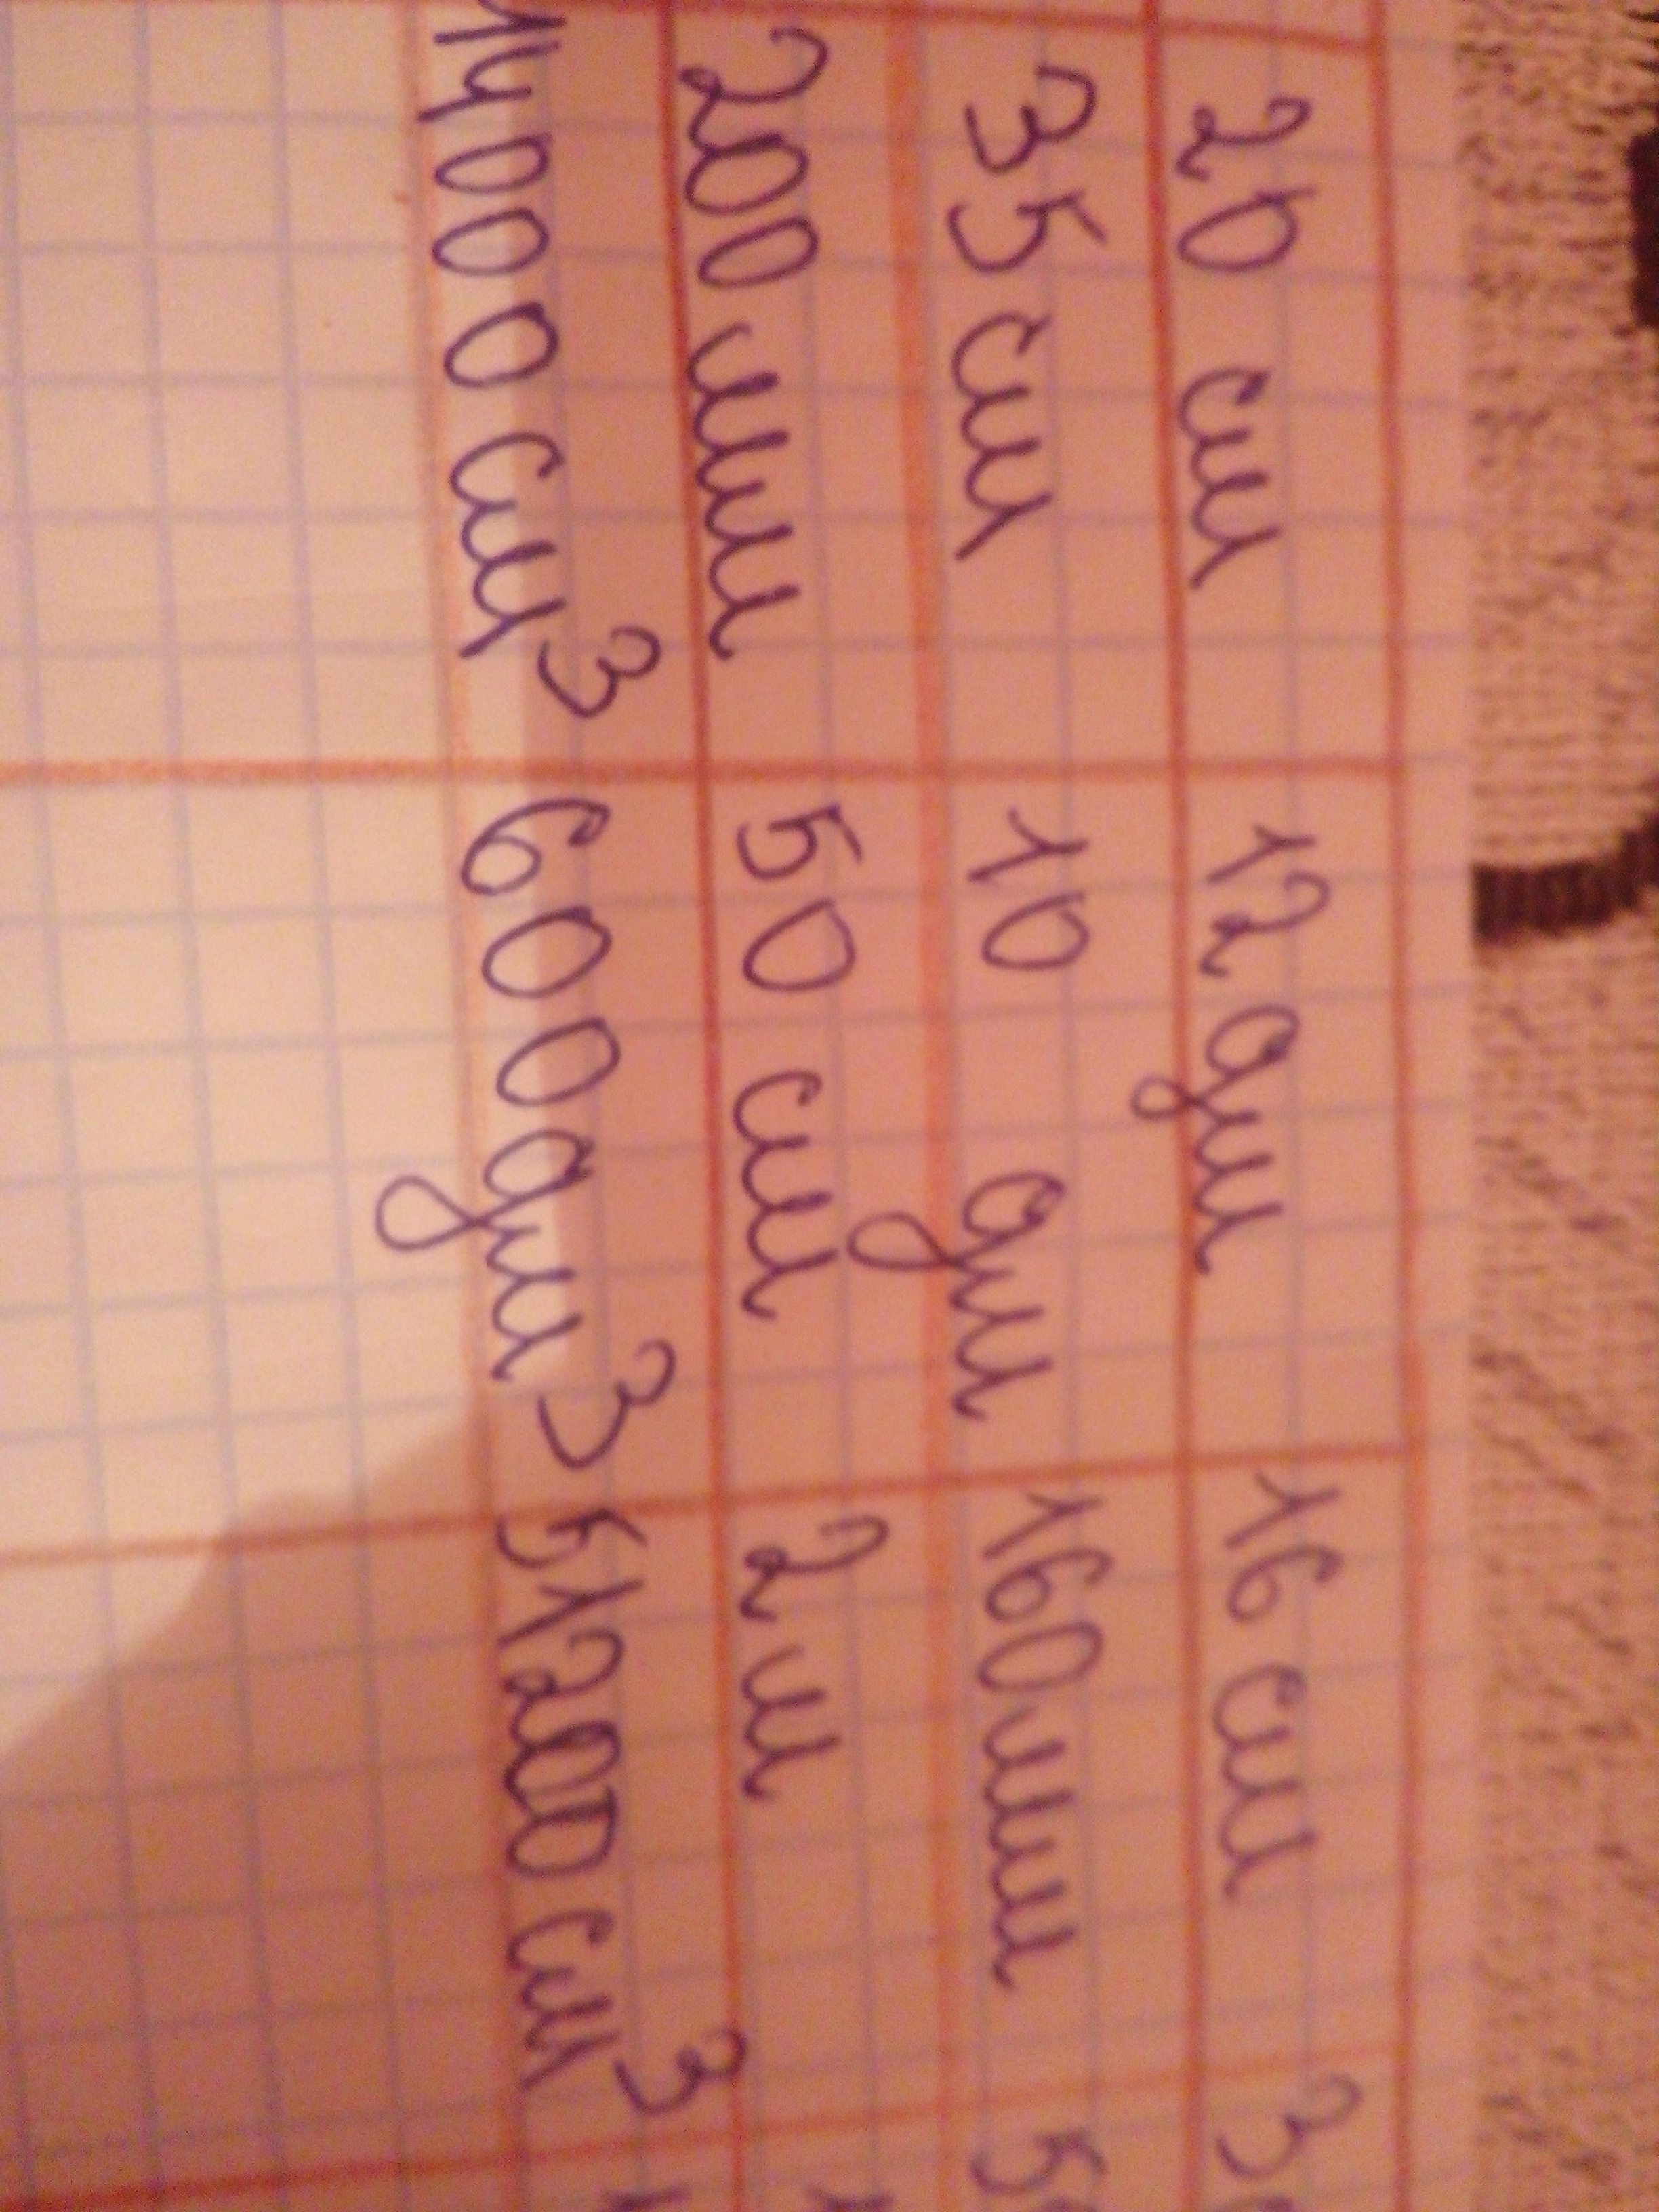 20 см 12 дм 16 см 3
35 см 10 дм 160 мм 5
200 мм 50 см 2 м 1
14000 см³ 600 дм³ 51200 см³